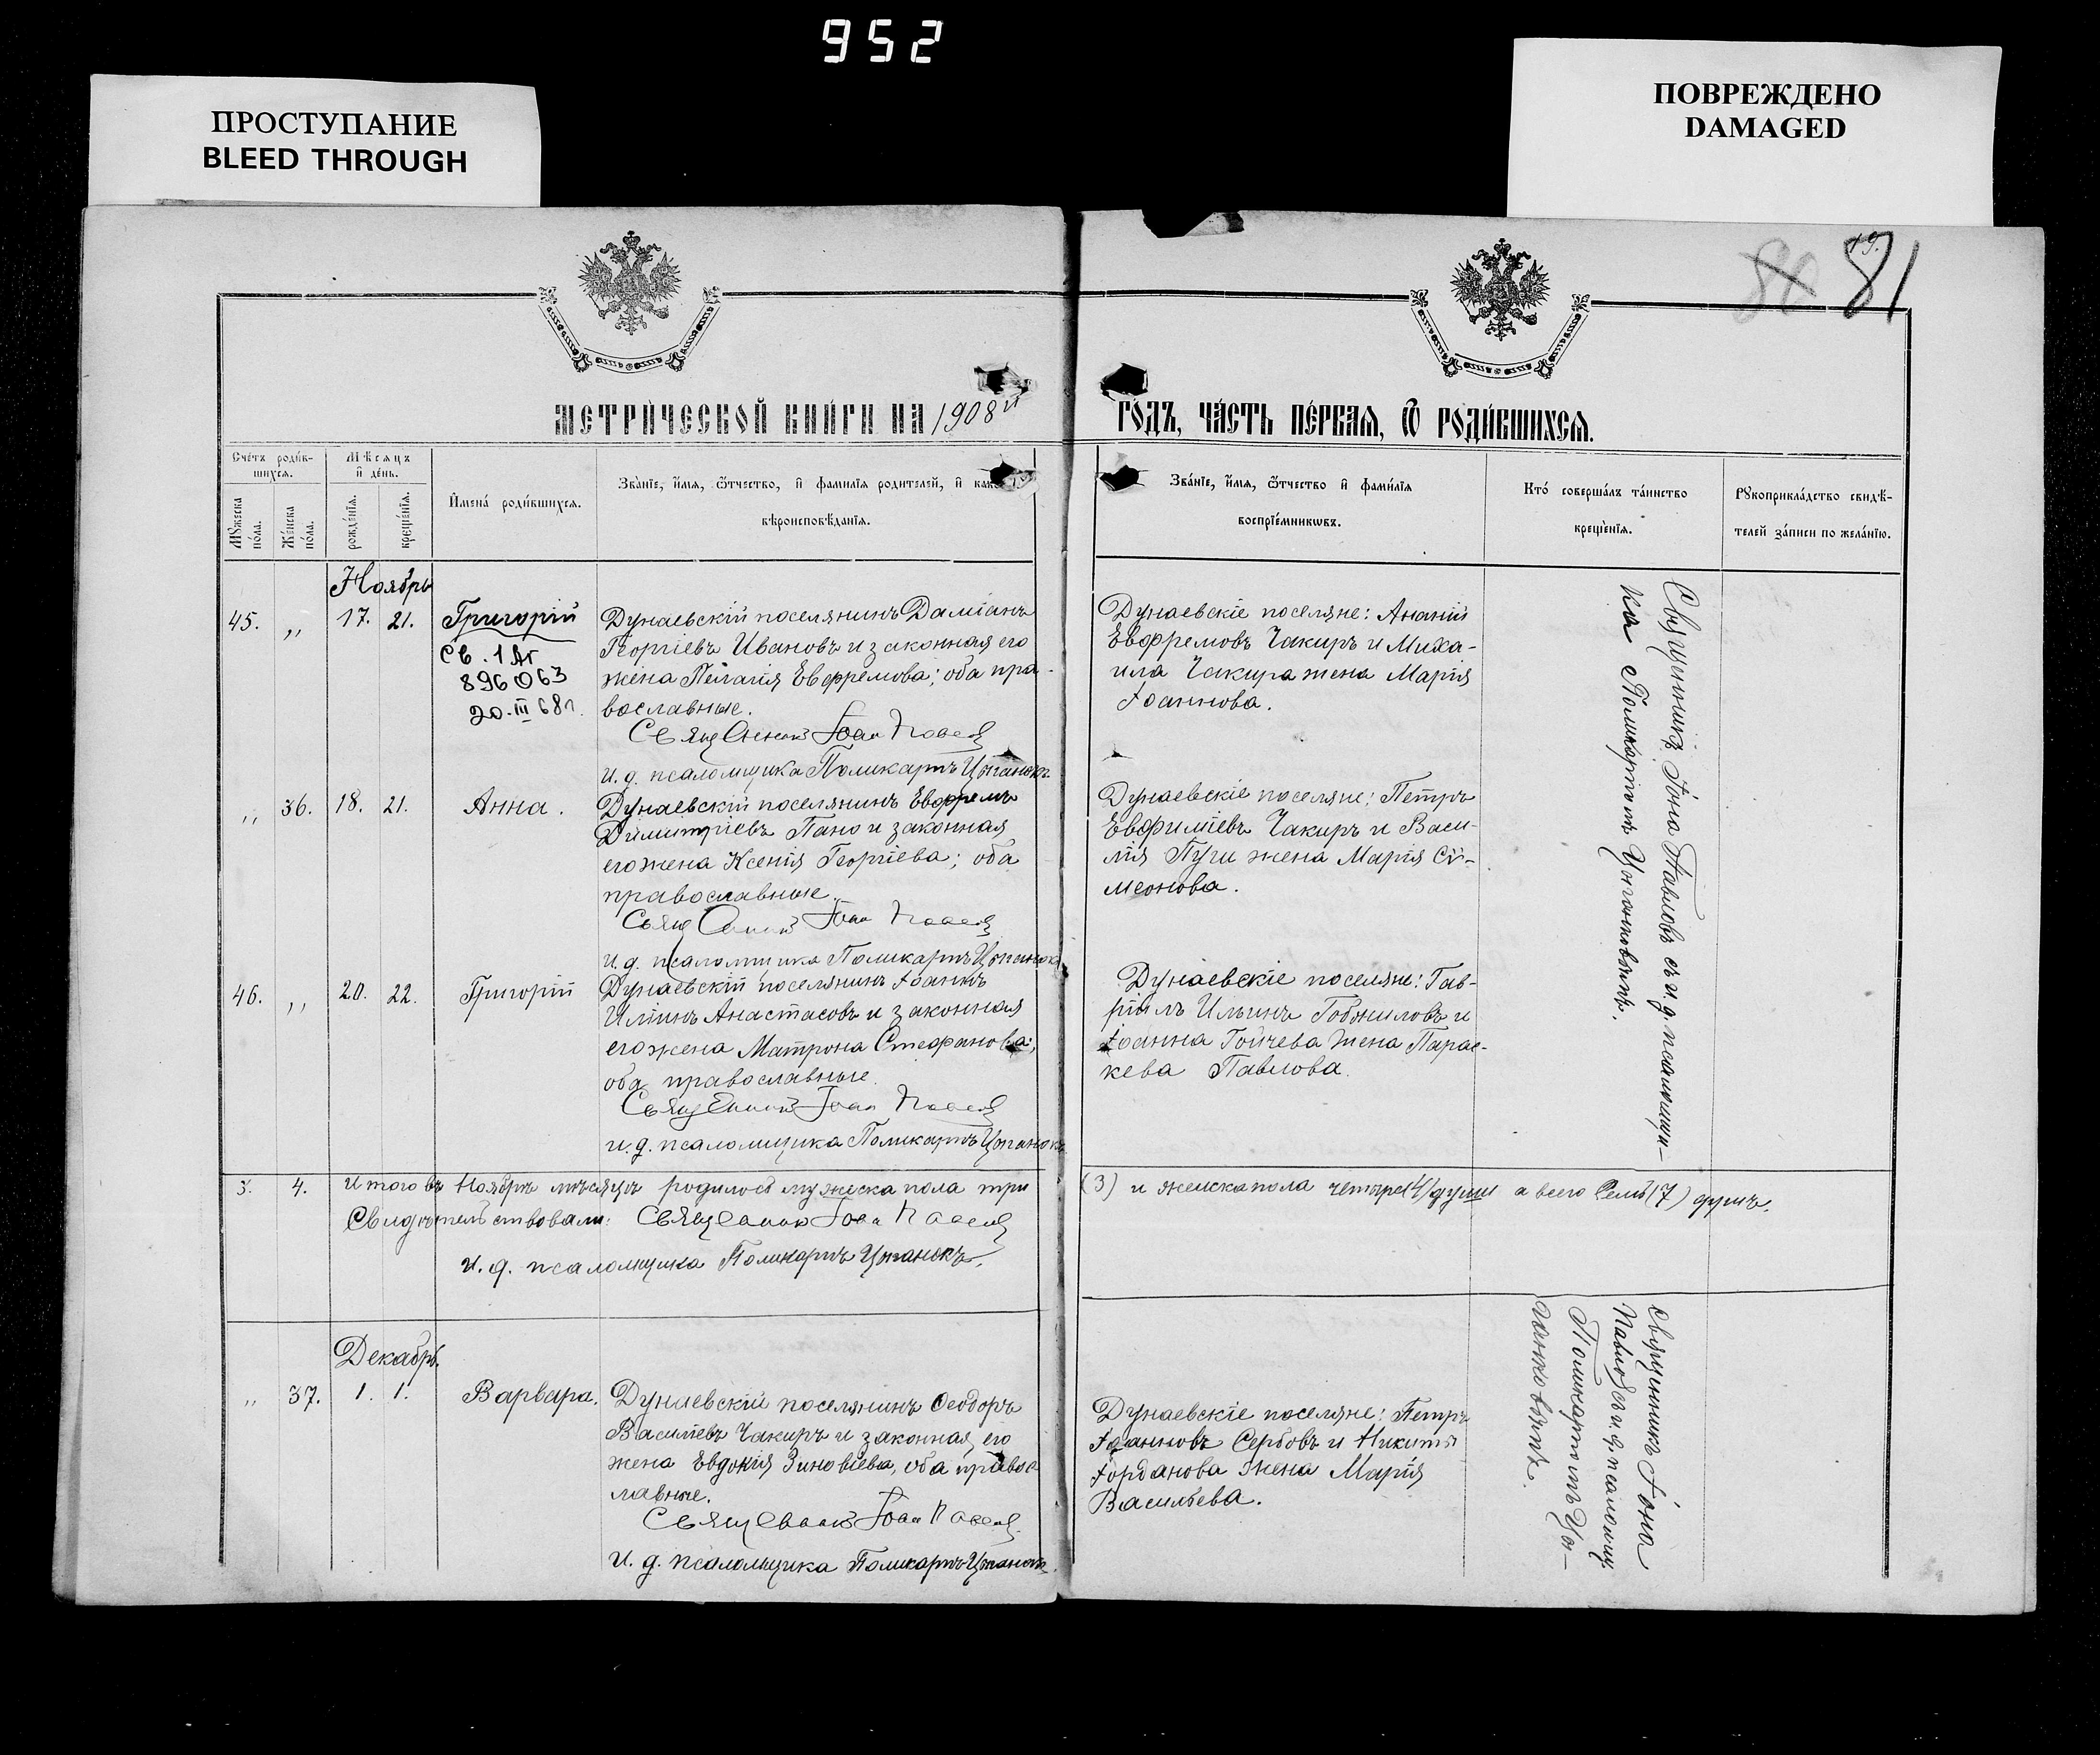 952
ПРОСТУПАНИЕ
BLEED THROUGH
ПОВРЕЖДЕНО
DAMAGED
80 81
МЕТРИ́ЧЕСКОЙ КНИ́ГИ НА 1908й
ГО́ДЪ, ЧА́СТЬ ПЕ́РВАѦ, Ѿ РОДИ́ВШИХСѦ.
Сче́тъ роди́в-
шихсѧ.
Мѣ́сѧцъ
и҆ де́нь.
Мꙋ́жеска
по́ла.
Же́нска
по́ла.
рожде́нїѧ.
креще́нїѧ.
И҆мена̀ роди́вшихсѧ.
Зва́нїе, и҆́мѧ, ѻ҆́тчество, и҆ фами́лїѧ роди́телей, и҆ како
вѣроисповѣ́данїѧ.
Зва́нїе, и҆́мѧ, ѻ҆́тчество и҆ фами́лїѧ
воспрїе́мникѡвъ.
Кто́ соверша́лъ та́инство
креще́нїѧ.
Рꙋкоприкла́дство свидѣ́-
телей за́писи по жела́нїю.
Ноябрь
45. ,, 17. 21. Григорій
Св. 1 АГ
896063
20.III 68г.
Дунаевскій поселянинъ Даміанъ
Георгіевъ Ивановъ и законная его
жена Пелагія Евфремова; оба пра-
вославные.
Священникъ Іоан Павлов
и. д. псаломщика Поликарпъ Цыганокъ
Дунаевскіе поселяне: Ананій
Евфремовъ Чакиръ и Миха-
ила Чакира жена Марія
Іоаннова.
Священникъ Іона Павловъ съ и. д. псаломщи-
ка Поликарпомъ Цыганковымъ.
,, 36. 18. 21. Анна.
Дунаевскій поселянинъ Евфремъ
Димитріевъ Пано и законная
его жена Ксенія Георгіева; оба
православные.
Священникъ Іоан Павлов
и. д. псаломщика Поликарпъ Цыганокъ
Дунаевскіе поселяне: Петръ
Евфиміевъ Чакиръ и Васи-
лія Пуги жена Марія Сѵ-
меонова.
46. ,, 20. 22. Григорій
Дунаевскій поселянинъ Іоаннъ
Иліинъ Анастасовъ и законная
его жена Матрона Стефанова;
оба православные.
Священникъ Іоан Павлов
и. д. псаломщика Поликарпъ Цыганокъ
Дунаевскіе поселяне: Гав-
ріилъ Ильинъ Гобжиловъ и
Іоанна Гойчева жена Парас-
кева Павлова.
3. 4. Итого въ Ноябрѣ мѣсяцѣ родилось мужеска пола три
(3) и женска пола четыре (4) души а всего семь (7) душъ.
Свидѣтельствовали: Священник Іоан Павлов
и. д. псаломщика Поликарпъ Цыганокъ.
Декабрь.
,, 37. 1. 1. Варвара.
Дунаевскій поселянинъ Ѳеодоръ
Василіевъ Чакиръ и законная его
жена Евдокія Зиновіева, оба правос
лавные.
Священникъ Іоан Павлов
и. д. псаломщика Поликарпъ Цыганокъ.
Дунаевскіе поселяне: Петръ
Іоанновъ Сербовъ и Никиты
Іорданова жена Марія
Васильева.
Священникъ Іона
Павловъ съ и. д. псаломщ.
Поликарпомъ Цы-
ганковымъ.